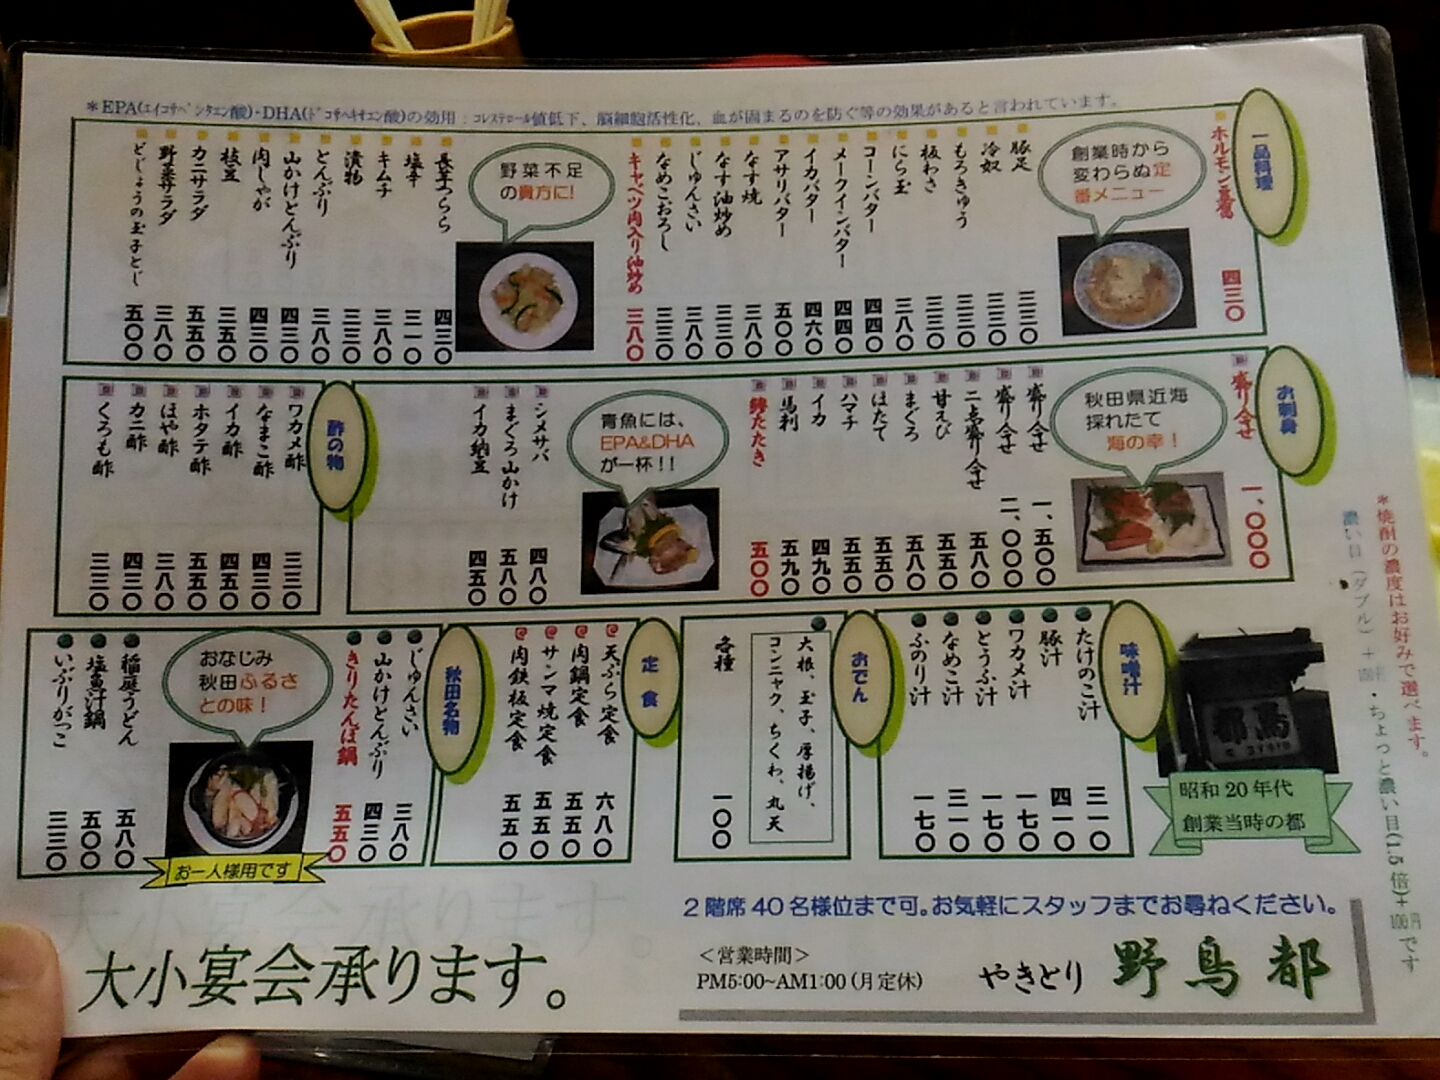 ＊EPA(ｴｲｺｻﾍﾟﾝﾀｴﾝ酸)・DHA(ﾄﾞｺｻﾍｷｻｴﾝ酸)の効用：ｺﾚｽﾃﾛｰﾙ値低下、脳細胞活性化、血が固まるのを防ぐ等の効果があると言われています。
一品料理
ホルモン豆腐 四三〇
創業時から
変わらぬ定
番メニュー
豚足 三三〇
冷奴 三三〇
もろきゅう 三三〇
板わさ 三三〇
にら玉 三八〇
コーンバター 四四〇
メークインバター 四四〇
イカバター 四六〇
アサリバター 五〇〇
なす焼 三八〇
なす油炒め 三三〇
じゅんさい 三八〇
なめこおろし 三三〇
キャベツ肉入り油炒め 三八〇
野菜不足
の貴方に!
長芋つらら 四三〇
塩辛 二一〇
キムチ 三八〇
漬物 三三〇
とんぶり 三八〇
山かけとんぶり 四三〇
肉じゃが 四三〇
枝豆 三五〇
カニサラダ 五五〇
野菜サラダ 三八〇
どじょうの玉子とじ 五〇〇
お刺身
盛り合せ 一、〇〇〇
秋田県近海
採れたて
海の幸！
盛り合せ 一、五〇〇
盛り合せ 二、〇〇〇
二点盛り合せ 五八〇
甘えび 五五〇
まぐろ 五八〇
ほたて 五五〇
ハマチ 五五〇
イカ 四九〇
馬刺 五九〇
鯵たたき 五〇〇
青魚には、
EPA&DHA
が一杯!!
シメサバ 四八〇
まぐろ山かけ 五八〇
イカ納豆 四五〇
酢の物
ワカメ酢 三三〇
なまこ酢 四三〇
イカ酢 四五〇
ホタテ酢 五五〇
ほや酢 三八〇
カニ酢 四三〇
くろも酢 三三〇
＊焼酎の濃度はお好みで選べます。
濃い目(ダブル)＋100円・ちょっと濃い目(1.5倍)＋100円です
昭和20年代
創業当時の都
味噌汁
たけのこ汁 三一〇
豚汁 四一〇
ワカメ汁 一七〇
とうふ汁 一七〇
なめこ汁 三一〇
ふのり汁 一七〇
おでん
大根、玉子、厚揚げ、
コンニャク、ちくわ、丸天
各種 一〇〇
定食
天ぷら定食 六八〇
肉鍋定食 五五〇
サンマ焼定食 五五〇
肉鉄板定食 五五〇
秋田名物
じゅんさい 三八〇
山かけとんぶり 四三〇
きりたんぽ鍋 五五〇
おなじみ
秋田ふるさ
との味！
お一人様用です
稲庭うどん 五八〇
塩魚汁鍋 五〇〇
いぶりがっこ 三三〇
2階席40名様位まで可。お気軽にスタッフまでお尋ねください。
大小宴会承ります。
＜営業時間＞
PM5:00~AM1:00(月定休)
やきとり 野鳥都